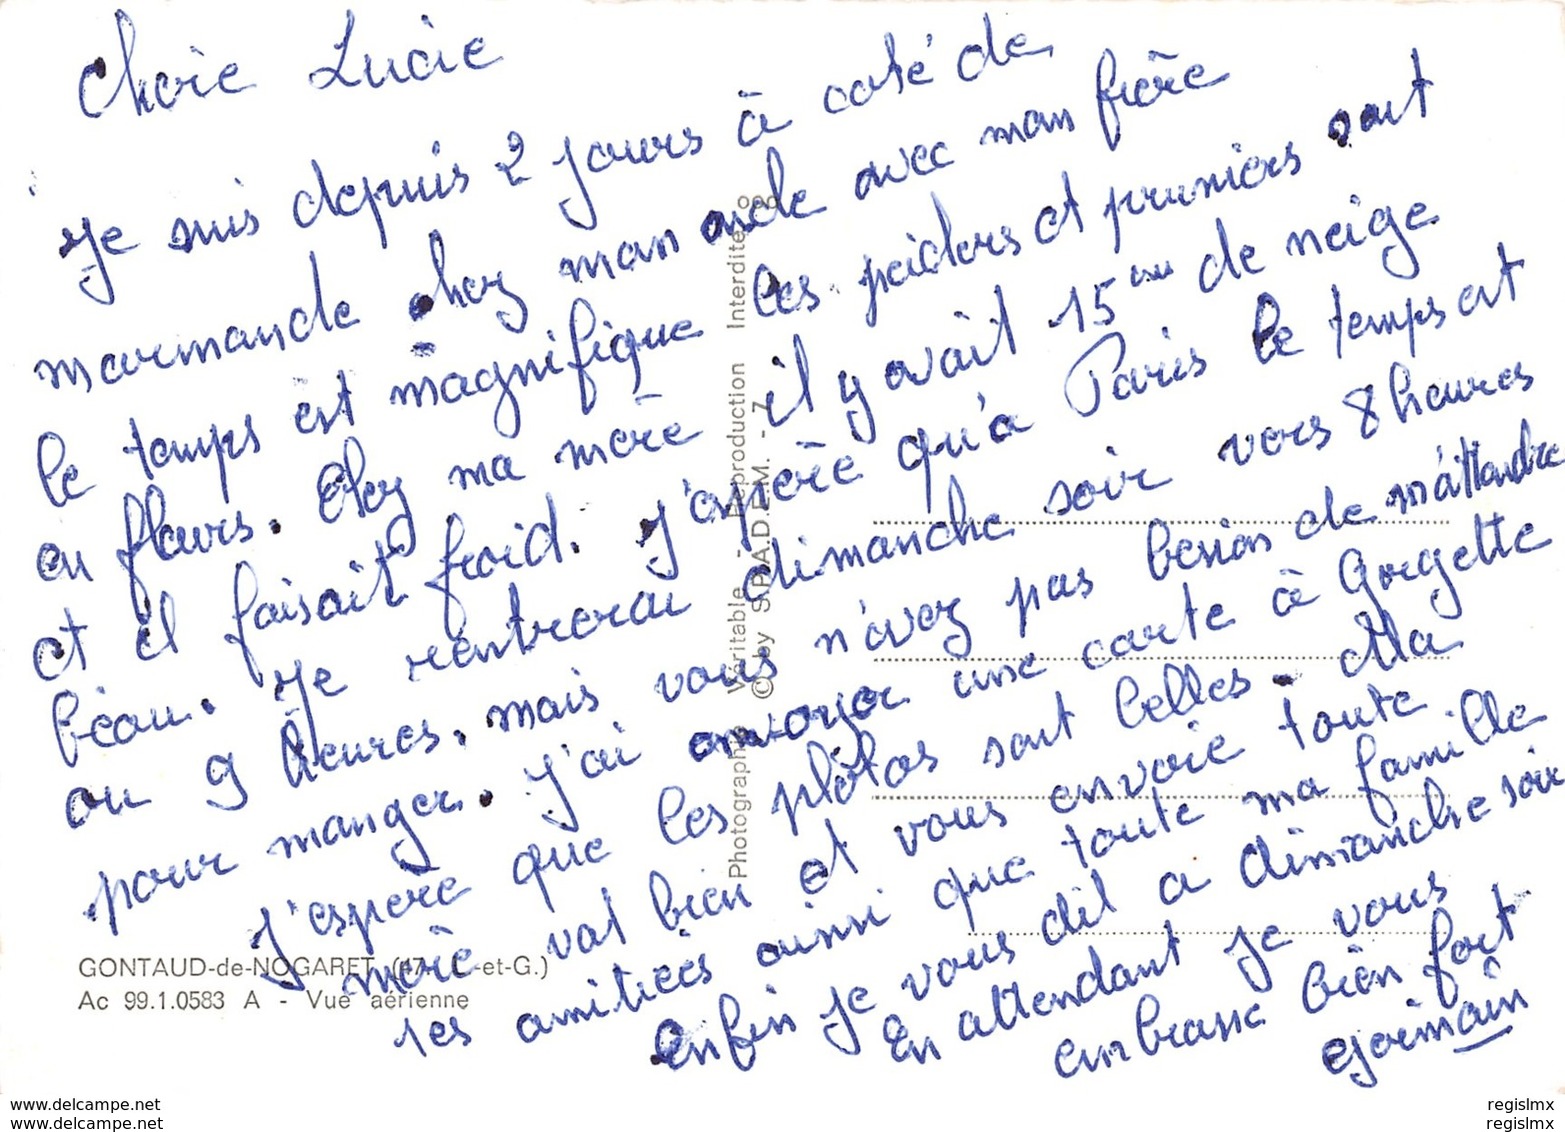 Chère Lucie
Je suis depuis 2 jours à coté de
marmande chez mon oncle avec mon frère
le temps est magnifique les pêchers et pruniers sont
en fleurs. Chez ma mère il y avait 15 cm de neige
et il faisait froid. J'espère qu'à Paris le temps est
beau. Je rentrerai dimanche soir vers 8 heures
ou 9 heures. mais vous n'avez pas besion de m'attendre
pour manger. J'ai envoyer une carte à Gorgette
J'espère que les phôtos sont belles. Ma
mère vat bien et vous envoie toute
ses amitiées ainsi que toute ma famille
Enfin je vous dit a dimanche soir
En attendant je vous
embrasse bien fort
Germain
Photographie Véritable - Reproduction Interdite
© by S.P.A.D.E.M. - 7
GONTAUD-de-NOGARET (47 L.-et-G.)
Ac 99.1.0583 A - Vue aérienne
www.delcampe.net
www.delcampe.net
regislmx
regislmx